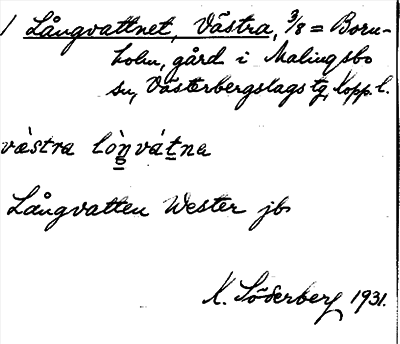 / Långvattnet, Västra, 3/8 = Born-
holm, gård i Malingsbo
sn, Västerbergslags tg, Kopp. l.
västra lòŋvátna
Långvatten Wester jb
K. Söderberg 1931.